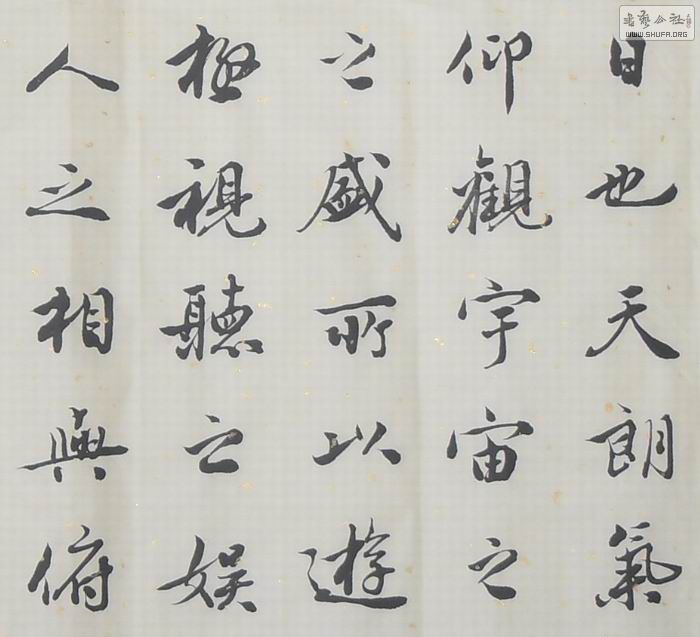 日也天朗氣
仰觀宇宙之
之盛所以遊
極視聽之娛
人之相與俯
WWW.SHUFA.ORG